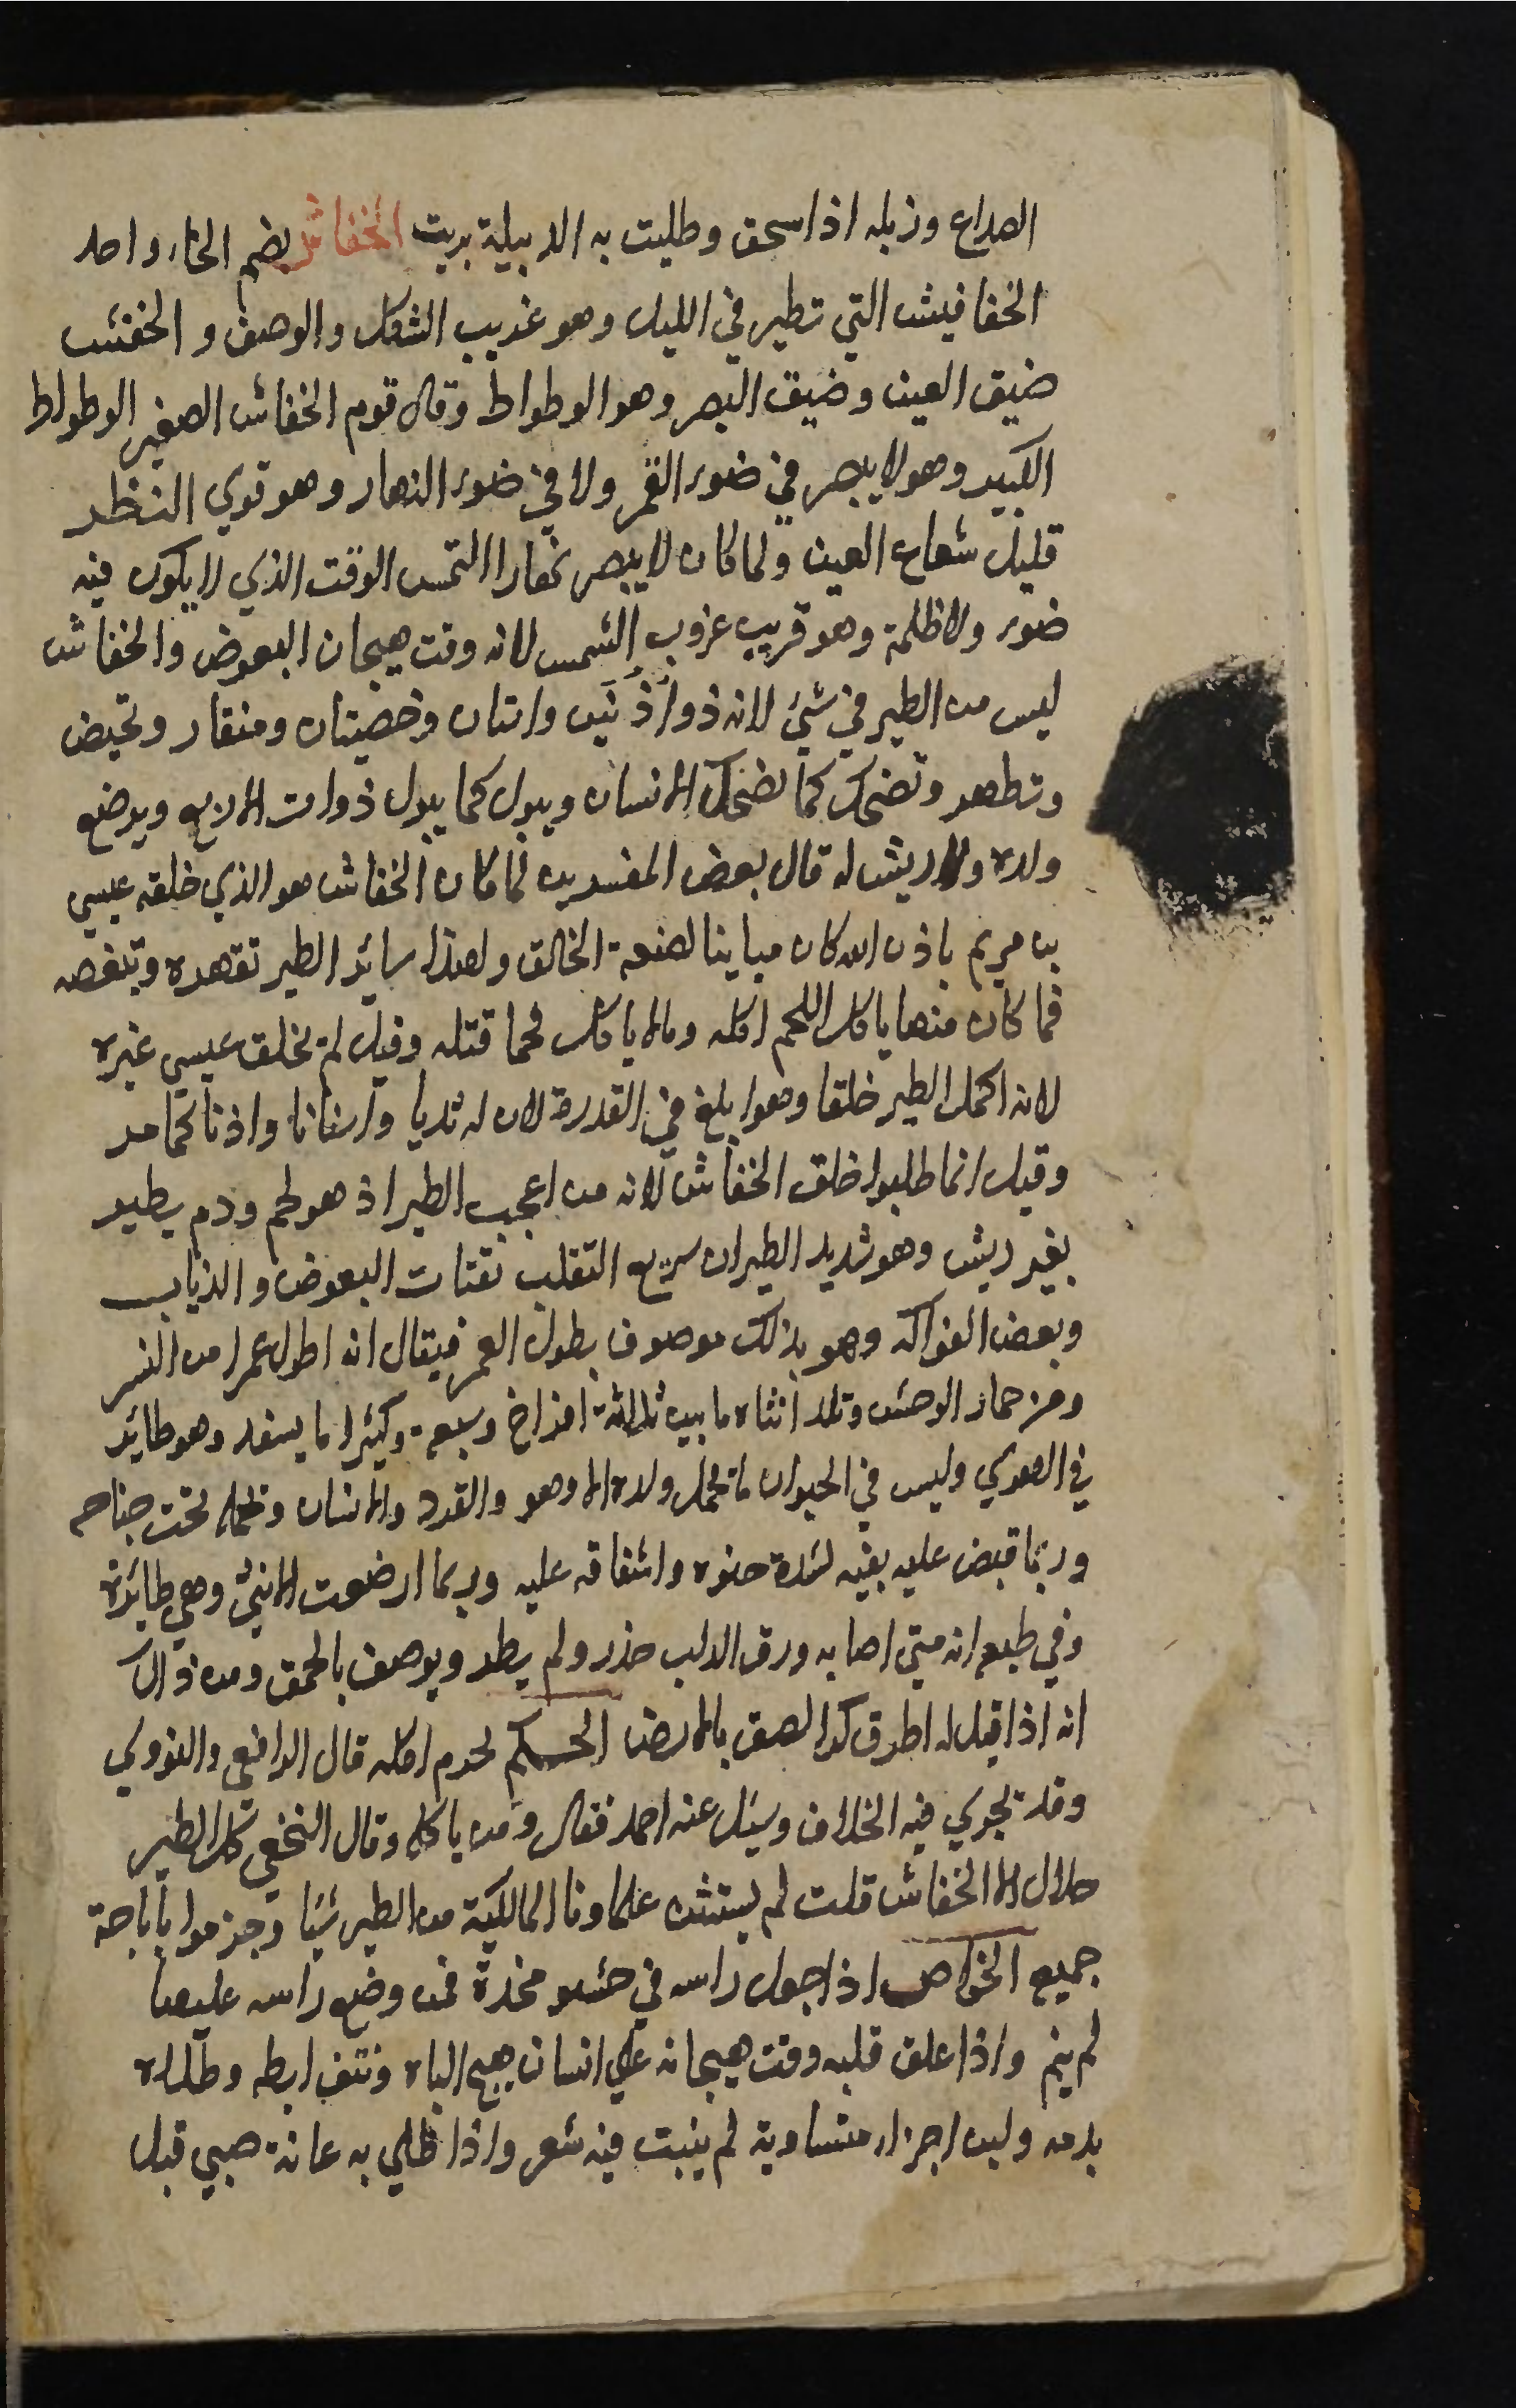 الصداع وزبله اذا سحق وطليت به الدبيلة بريت الخفاش بضم الخاء واحد
الخفافيش التي تطير في الليل وهو غريب الشكل والوصف و الخفش
ضيق العين وضيق البصر وهو الوطواط وقال قوم الخفاش الصغير الوطواط
الكبير وهو لا يبصر في ضوء القمر ولا في ضوء النهار وهو قوي النظر
قليل شعاع العين ولما كان لا يبصر نهارا التمس الوقت الذي لا يكون فيه
ضوء ولا ظلمة وهو قريب غروب الشمس لانه وقت هيجان البعوض والخفاش
ليس من الطير في شيئ لانه ذو اذنين واسنان وخصيتان ومنقار وتحيض
وتطهر وتضحك كما تضحك الانسان ويبول كما يبول ذوات الاربع ويرضع
ولده ولا ريش له قال بعض المفسرين لما كان الخفاش هو الذي خلقه عيسي
بن مريم باذن الله كان مباينا لصنعة الخالق ولهذا سائر الطير تقهره وتبغضه
فما كان منها ياكل اللحم اكله وما لا ياكل لحما قتله وقيل لم يخلق عيسي غيره
لانه اكمل الطير خلقا وهو ابلغ في القدرة لان له ثديا واسنانا واذنا كما مر
وقيل انما طلبوا خلق الخفاش لانه من اعجب الطير اذ هو لحم ودم يطير
بغير ريش وهو شديد الطيران سريع التقلب تقتات البعوض والذباب
وبعض الفواكه وهو بذلك موصوف بطول العمر فيقال انه اطول عمرا من النسر
ومن حمار الوحش وتلد انثاه ما بين ثلاثة افراخ وسبعة وكثيرا ما يسفد وهو طائر
في الهوي وليس في الحيوان ما تحمل ولده الا وهو والقرد والانسان وتحمله تحت جناحه
وربما قبض عليه بفيه لشدة حنوه واشفاقه عليه وربما ارضعت الانثي وهي طائرة
وفي طبعه انه متي اصابه ورق الدلب خذر ولم يطر ويوصف بالحمق ومن ذالك
انه اذا قيل له اطرق كرا لصق بالارض الحكم يحرم اكله قال الرافعي والنووي
وقد يجري فيه الخلاف وسئل عنه احمد فقال ومن ياكله وقال النخعي كل الطير
حلال الا الخفاش قلت لم يستثن علماونا المالكية من الطير شيئا وجزموا باباحة
جميع الخواص اذا جعل راسه في حشو مخدة فمن وضع راسه عليها
لم ينم واذا علق قلبه وقت هيجانه علي انسان يهيج الباه ونتف ابطه وطلاه
بدمه ولبن اجزاء متساوية لم ينبت فيه شعر واذا طلي به عانة صبي قبل